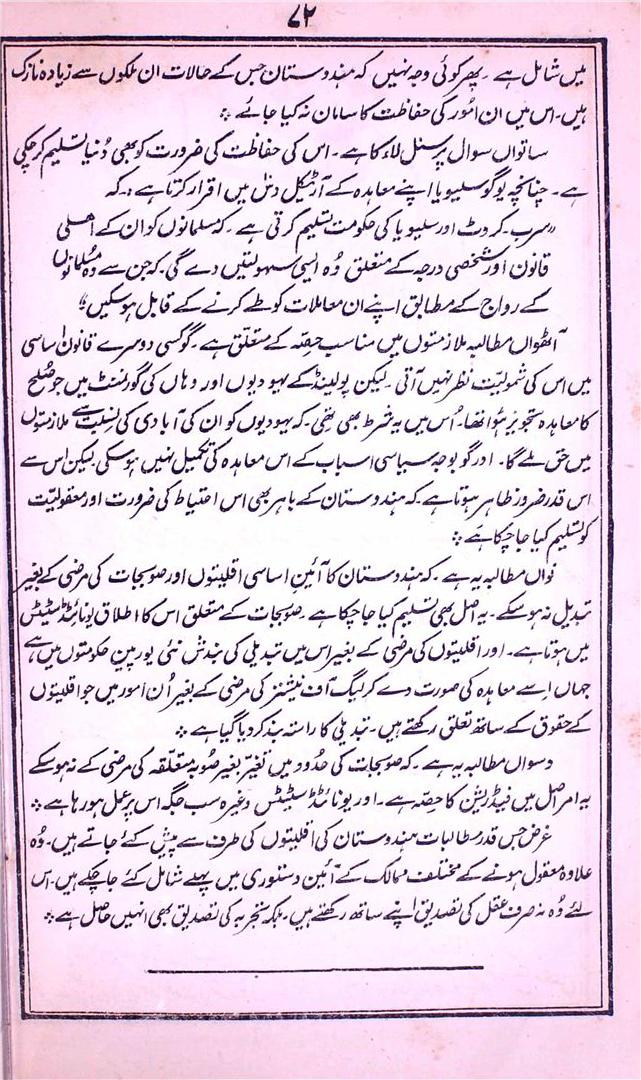 ۸۲
میں شامل ہے۔ پھر کوئی وجہ نہیں کہ ہندوستان جس کے حالات ان ملکوں سے زیادہ نازک
ہیں۔ اس میں ان امور کی حفاظت کا سامان نہ کیا جائے ؞
ساتواں سوال پرسنل لاء کا ہے۔ اس کی حفاظت کی ضرورت کو بھی دُنیا تسلیم کر چکی
ہے۔ چنانچہ یوگوسلیویا اپنے معاہدہ کے آرٹیکل دس میں اقرار کرتا ہے :۔ کہ
"سرب۔ کروٹ اور سلیویا کی حکومت تسلیم کرتی ہے۔ کہ مسلمانوں کو ان کے اھلی
قانون اور شخصی درجہ کے متعلق وُہ ایسی سہولتیں دے گی۔ کہ جن سے وہ مُسلمانوں
کے رواج کے مطابق اپنے ان معاملات کو طے کرنے کے قابل ہو سکیں"؞
آٹھواں مطالبہ ملازمتوں میں مناسب حصّہ کے متعلق ہے۔ گو کسی دوسرے قانون اساسی
میں اس کی شمولیّت نظر نہیں آتی۔ لیکن پولینڈ کے یہودیوں اور وہاں کی گورنمنٹ میں جو صُلح
کا معاہدہ تجویز ہؤا تھا۔ اُس میں یہ شرط بھی تھی۔ کہ یہودیوں کو ان کی آبادی کی نسبت سے ملازمتوں
میں حق ملے گا۔ اور گو بوجہ سیاسی اسباب کے اس معاہدہ کی تکمیل نہیں ہو سکی لیکن اس سے
اس قدر ضرور ظاہر ہوتا ہے۔ کہ ہندوستان کے باہر بھی اس احتیاط کی ضرورت اور معقولیّت
کو تسلیم کیا جا چکا ہے ؞
نواں مطالبہ یہ ہے۔ کہ ہندوستان کا آئین اساسی اقلیتوں اور صوبجات کی مرضی کے بغیر
تبدیل نہ ہو سکے۔ یہ اصل بھی تسلیم کیا جا چکا ہے۔ صوبجات کے متعلق اس کا اطلاق یونائٹڈ سٹیٹس
میں ہوتا ہے۔ اور اقلیتوں کی مرضی کے بغیر اس میں تبدیلی کی بندش نئی یورپین حکومتوں میں ہے
جہاں اسے معاہدہ کی صورت دے کر لیگ آف نیشنز کی مرضی کے بغیر اُن امور میں جو اقلیتوں
کے حقوق کے ساتھ تعلق رکھتے ہیں۔ تبدیلی کا راستہ بند کر دیا گیا ہے ؞
دسواں مطالبہ یہ ہے۔ کہ صوبجات کی حدود میں تغیّر بغیر صوبہ متعلّقہ کی مرضی کے نہ ہو سکے
یہ امر اصل میں فیڈریشن کا حصّہ ہے۔ اور یونائٹڈ سٹیٹس وغیرہ سب جگہ اس پر عمل ہو رہا ہے ؞
غرض جس قدر مطالبات ہندوستان کی اقلیتوں کی طرف سے پیش کئے جاتے ہیں۔ وُہ
علاوہ معقول ہونے کے مختلف ممالک کے آئین دستوری میں پہلے شامل کئے جا چکے ہیں۔ اس
لئے وُہ نہ صرف عقل کی تصدیق اپنے ساتھ رکھتے ہیں۔ بلکہ تجربہ کی تصدیق بھی انہیں حاصل ہے ؞